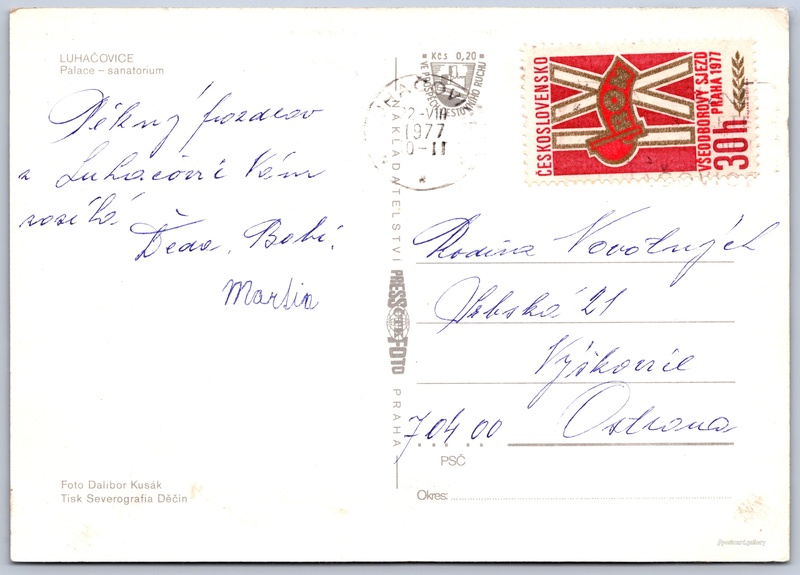 LUHAČOVICE
Palace – sanatorium
Pěkný pozdrav
z Luhačovic Vám
zasílá
Děda, Babi,
Martin
Kčs 0,20
VE PROSPĚCH CESTOVNÍHO RUCHU
2-VIII
1977
ČESKOSLOVENSKO
VŠEODBOROVÝ SJEZD
PRAHA 1977
30h
NAKLADATELSTVÍ
PRESSFOTO
ČTK
PRAHA 1
Rodina Novotných
Srbská 21
Výškovice
704 00 Ostrava
PSČ
Okres:
Foto Dalibor Kusák
Tisk Severografia Děčín